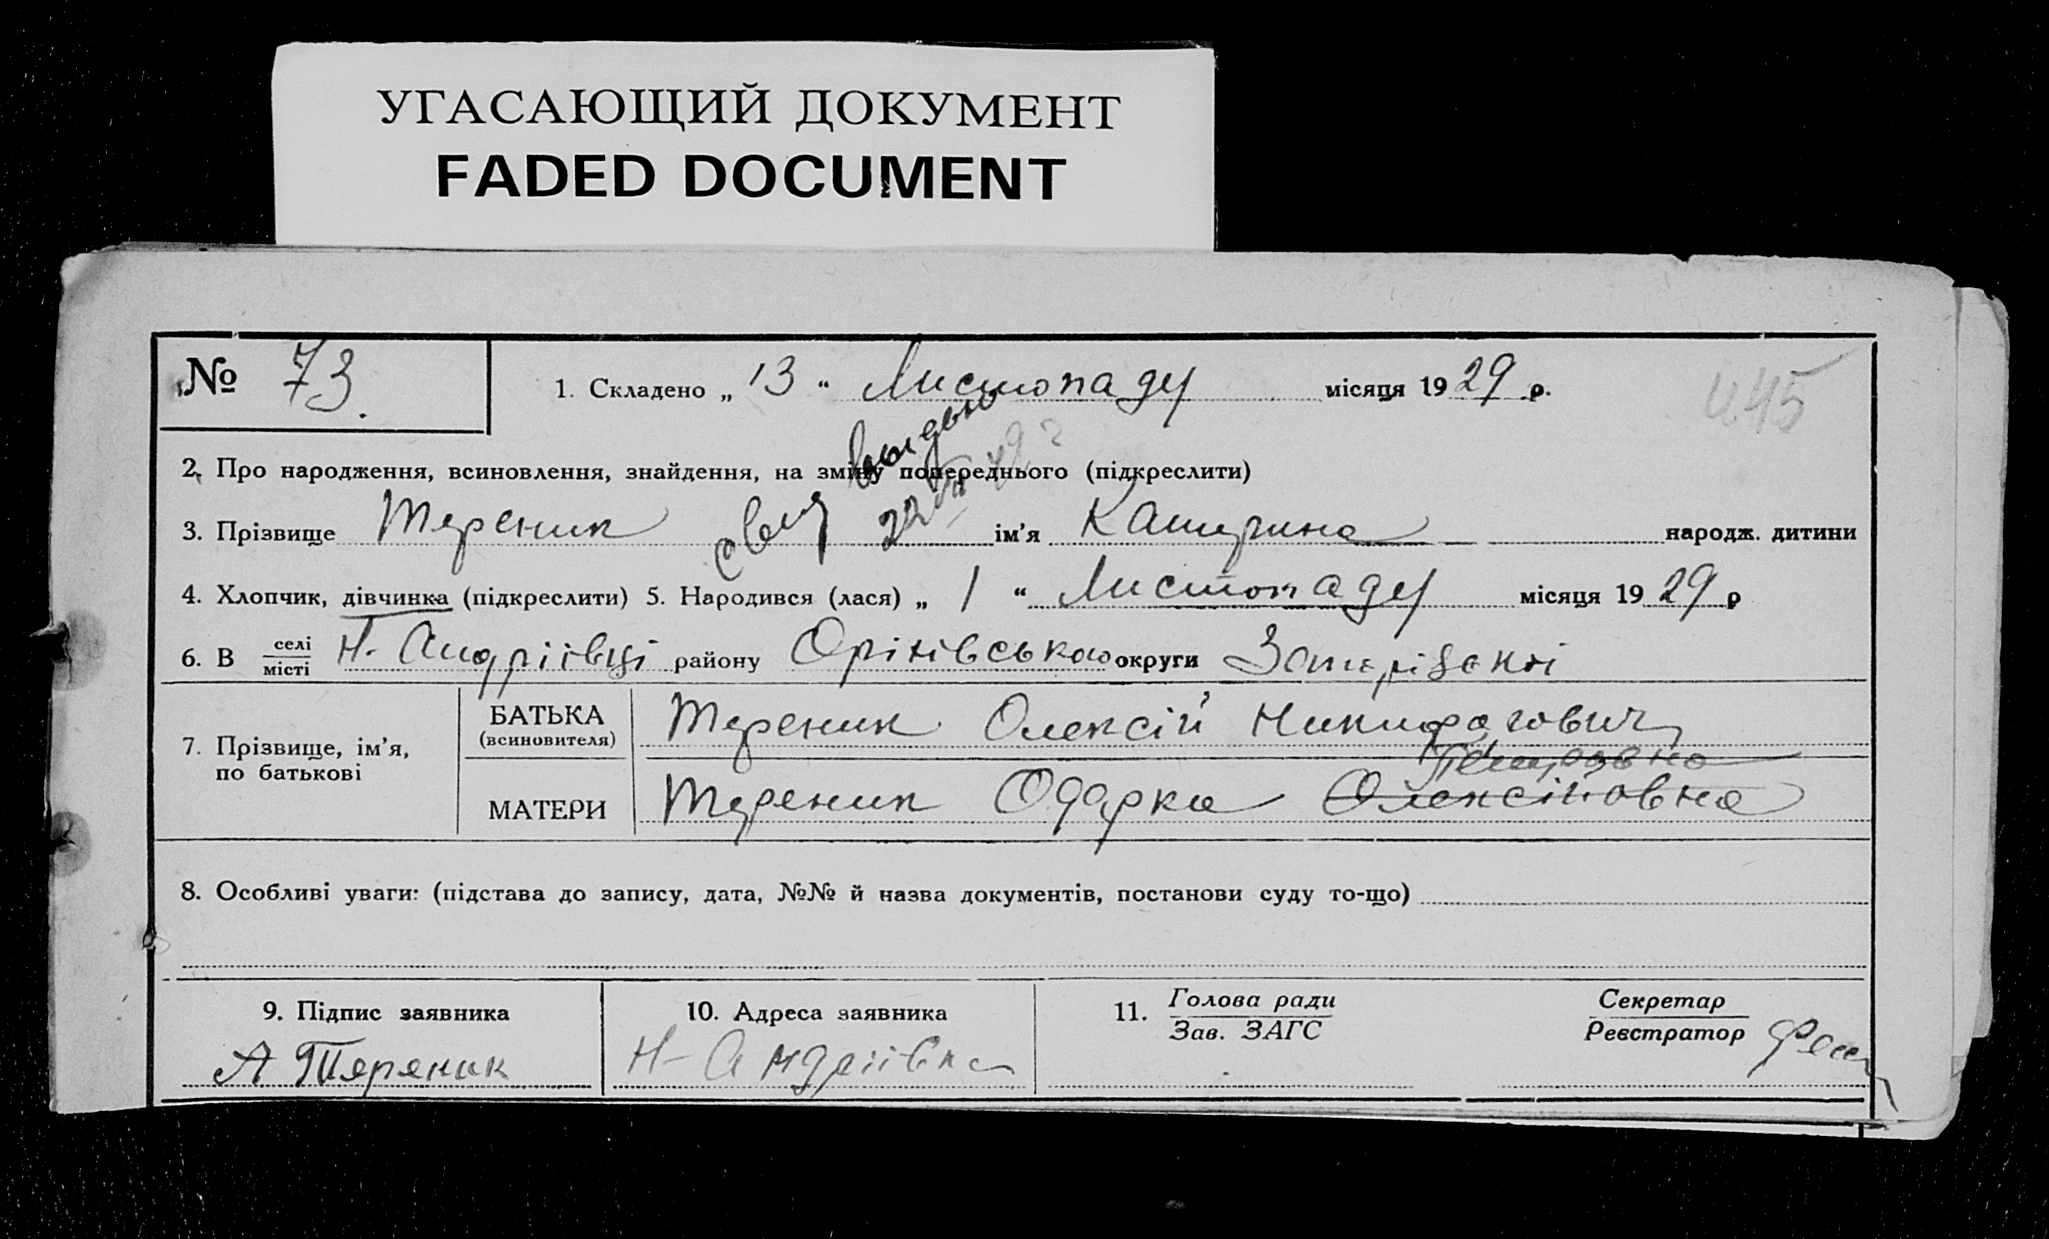 УГАСАЮЩИЙ ДОКУМЕНТ
FADED DOCUMENT
№ 73.
1. Складено „ 13 “ Листопаду місяця 1929 р.
445
2. Про народження, всиновлення, знайдення, на зміну попереднього (підкреслити)
3. Прізвище Тереник ім’я Катерина народж. дитини
4. Хлопчик, дівчинка (підкреслити) 5. Народився (лася) „ 1 “ Листопаду місяця 1929 р
6. В селі місті Н-Андріївці району Оріхівського округи
7. Прізвище, ім’я, по батькові
БАТЬКА (всиновителя) Тереник Олексій
МАТЕРИ Тереник Одарка Олексіївовна
Петровна
8. Особливі уваги: (підстава до запису, дата, №№ й назва документів, постанови суду то-що)
9. Підпис заявника
А Тереник
10. Адреса заявника
Н-Андріївка
11. Голова ради Зав. ЗАГС
Секретар Реєстратор